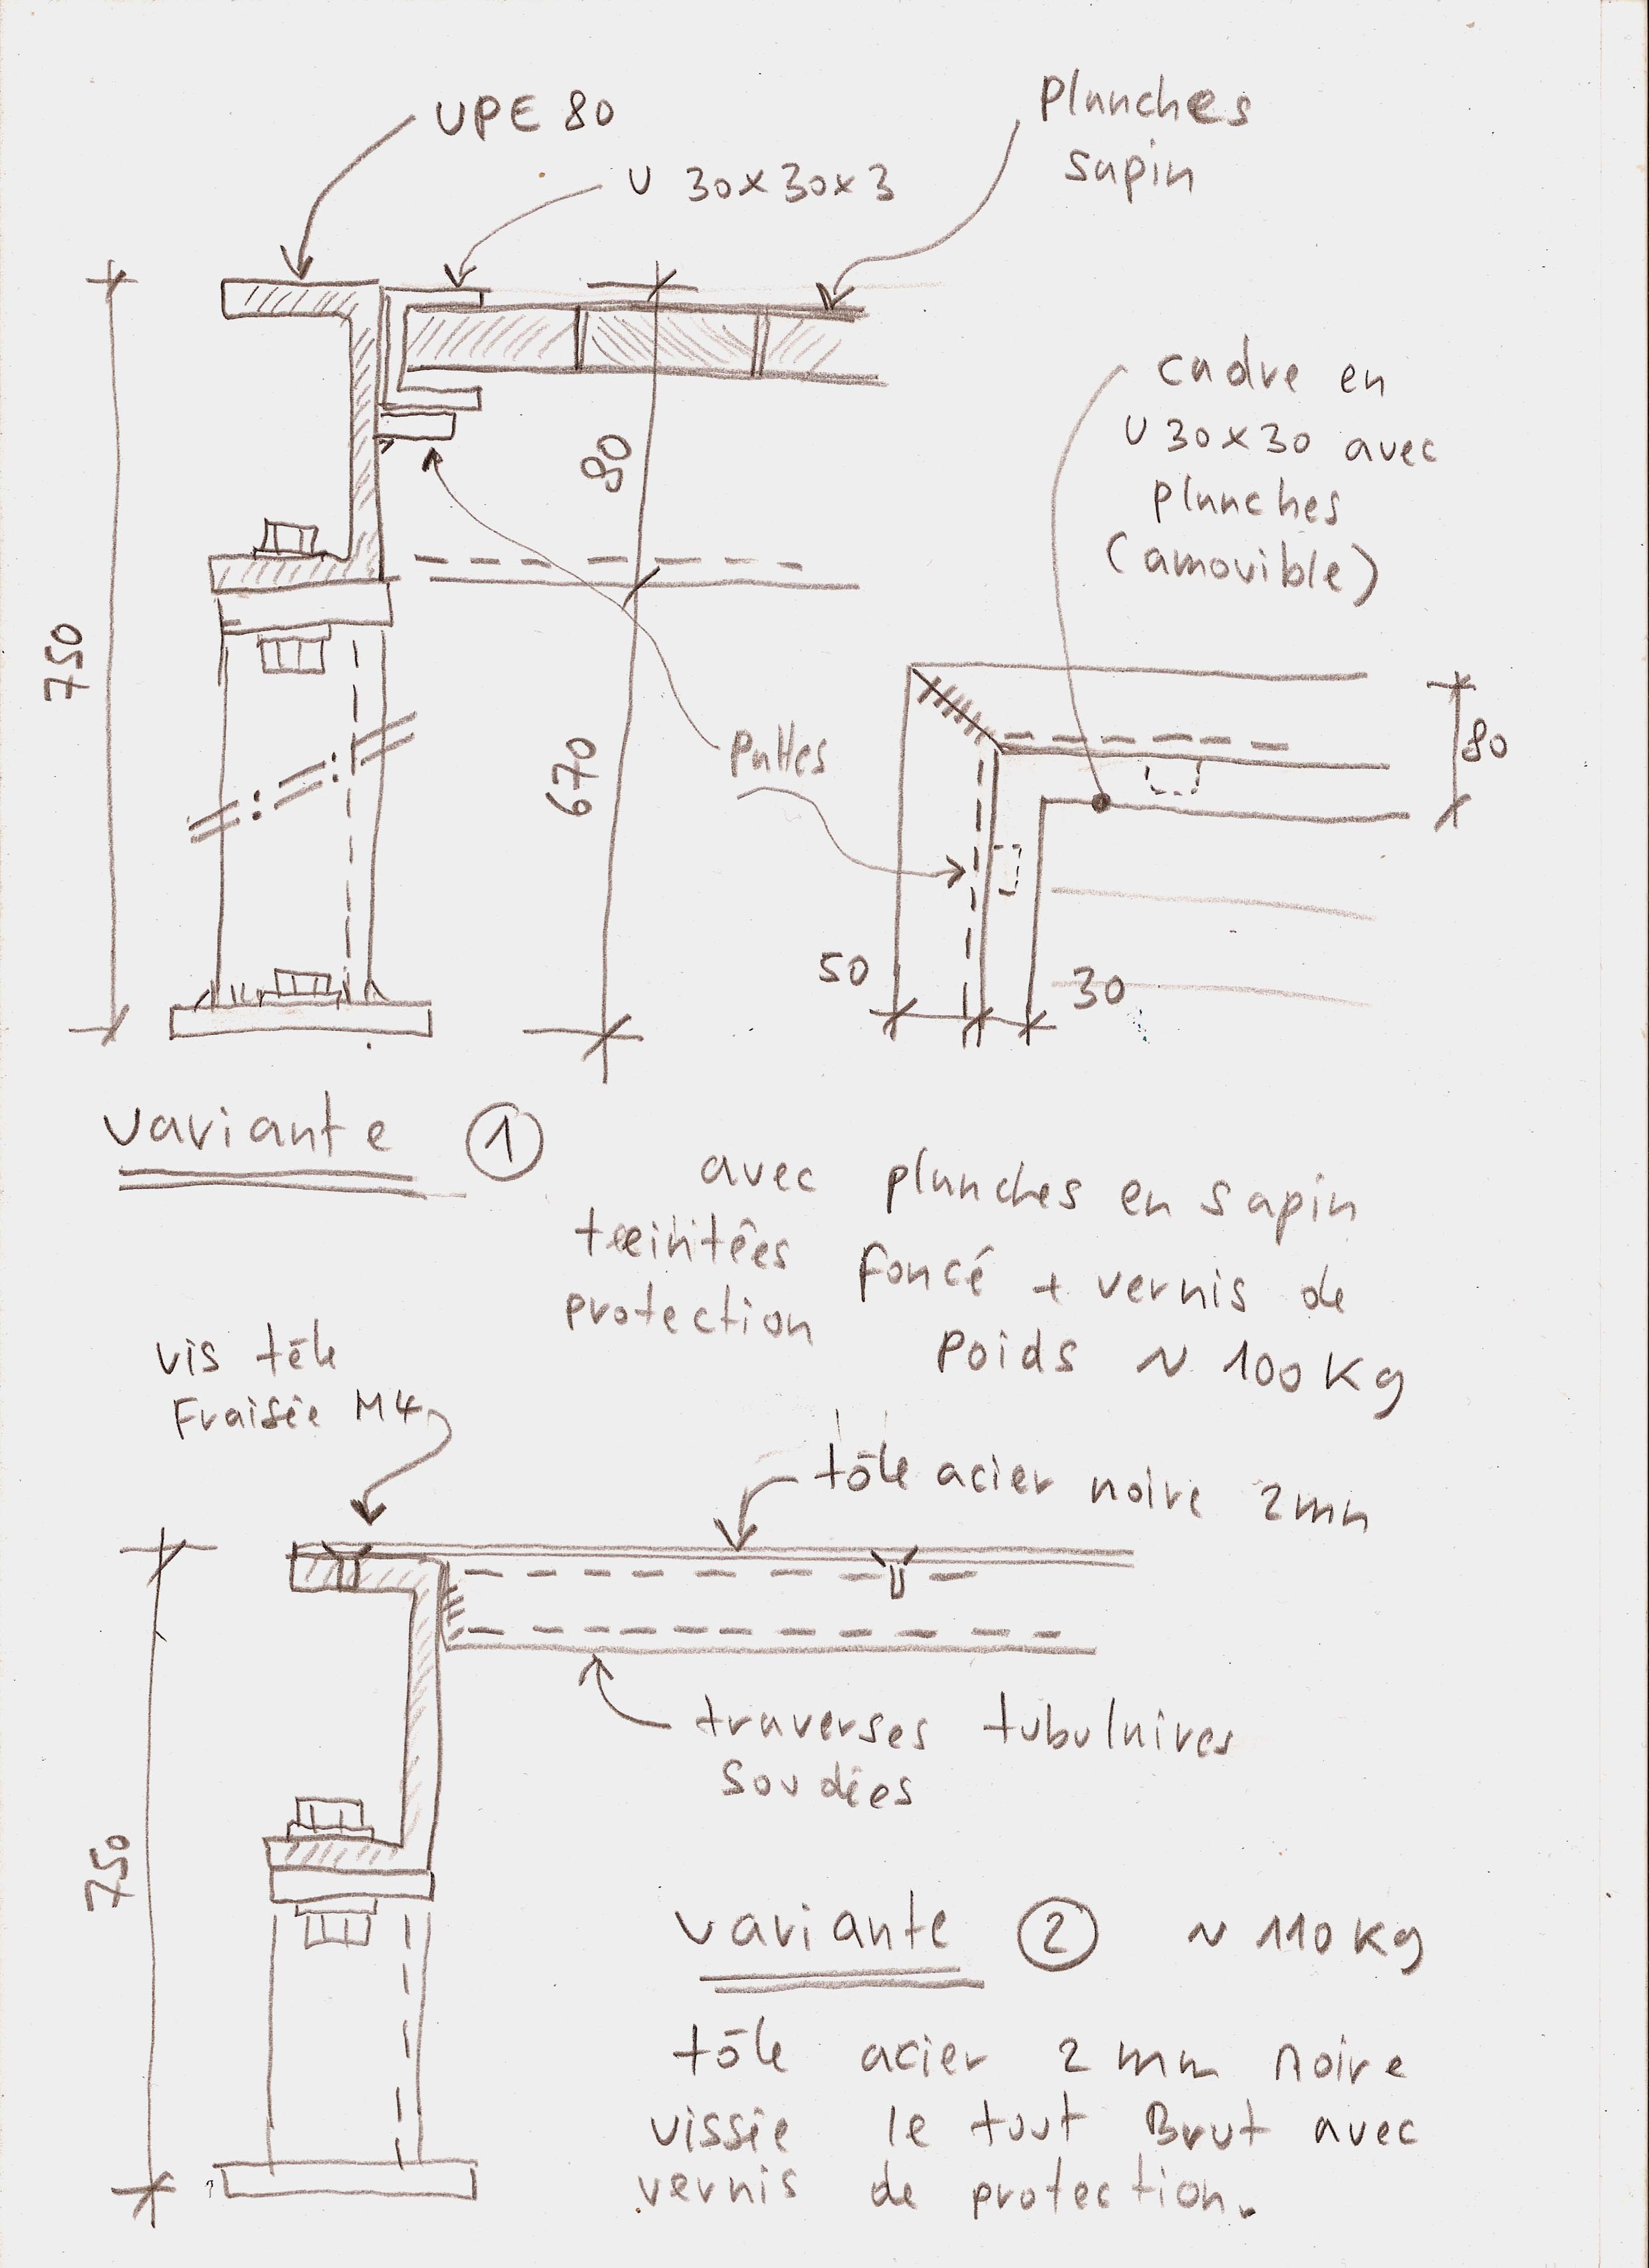 UPE 80
U 30x30x3
Planches
sapin
cadre en
U 30x30 avec
planches
(amovible)
750
80
670
Pattes
80
50
30
variante ①
avec planches en sapin
teeintêes foncé + vernis de
protection
Poids ~ 100 Kg
vis tête
Fraisée M4
tôle acier noire 2mm
traverses tubulaires
Soudées
750
variante ② ~ 110 Kg
tôle acier 2 mm noire
vissée le tout Brut avec
vernis de protection.